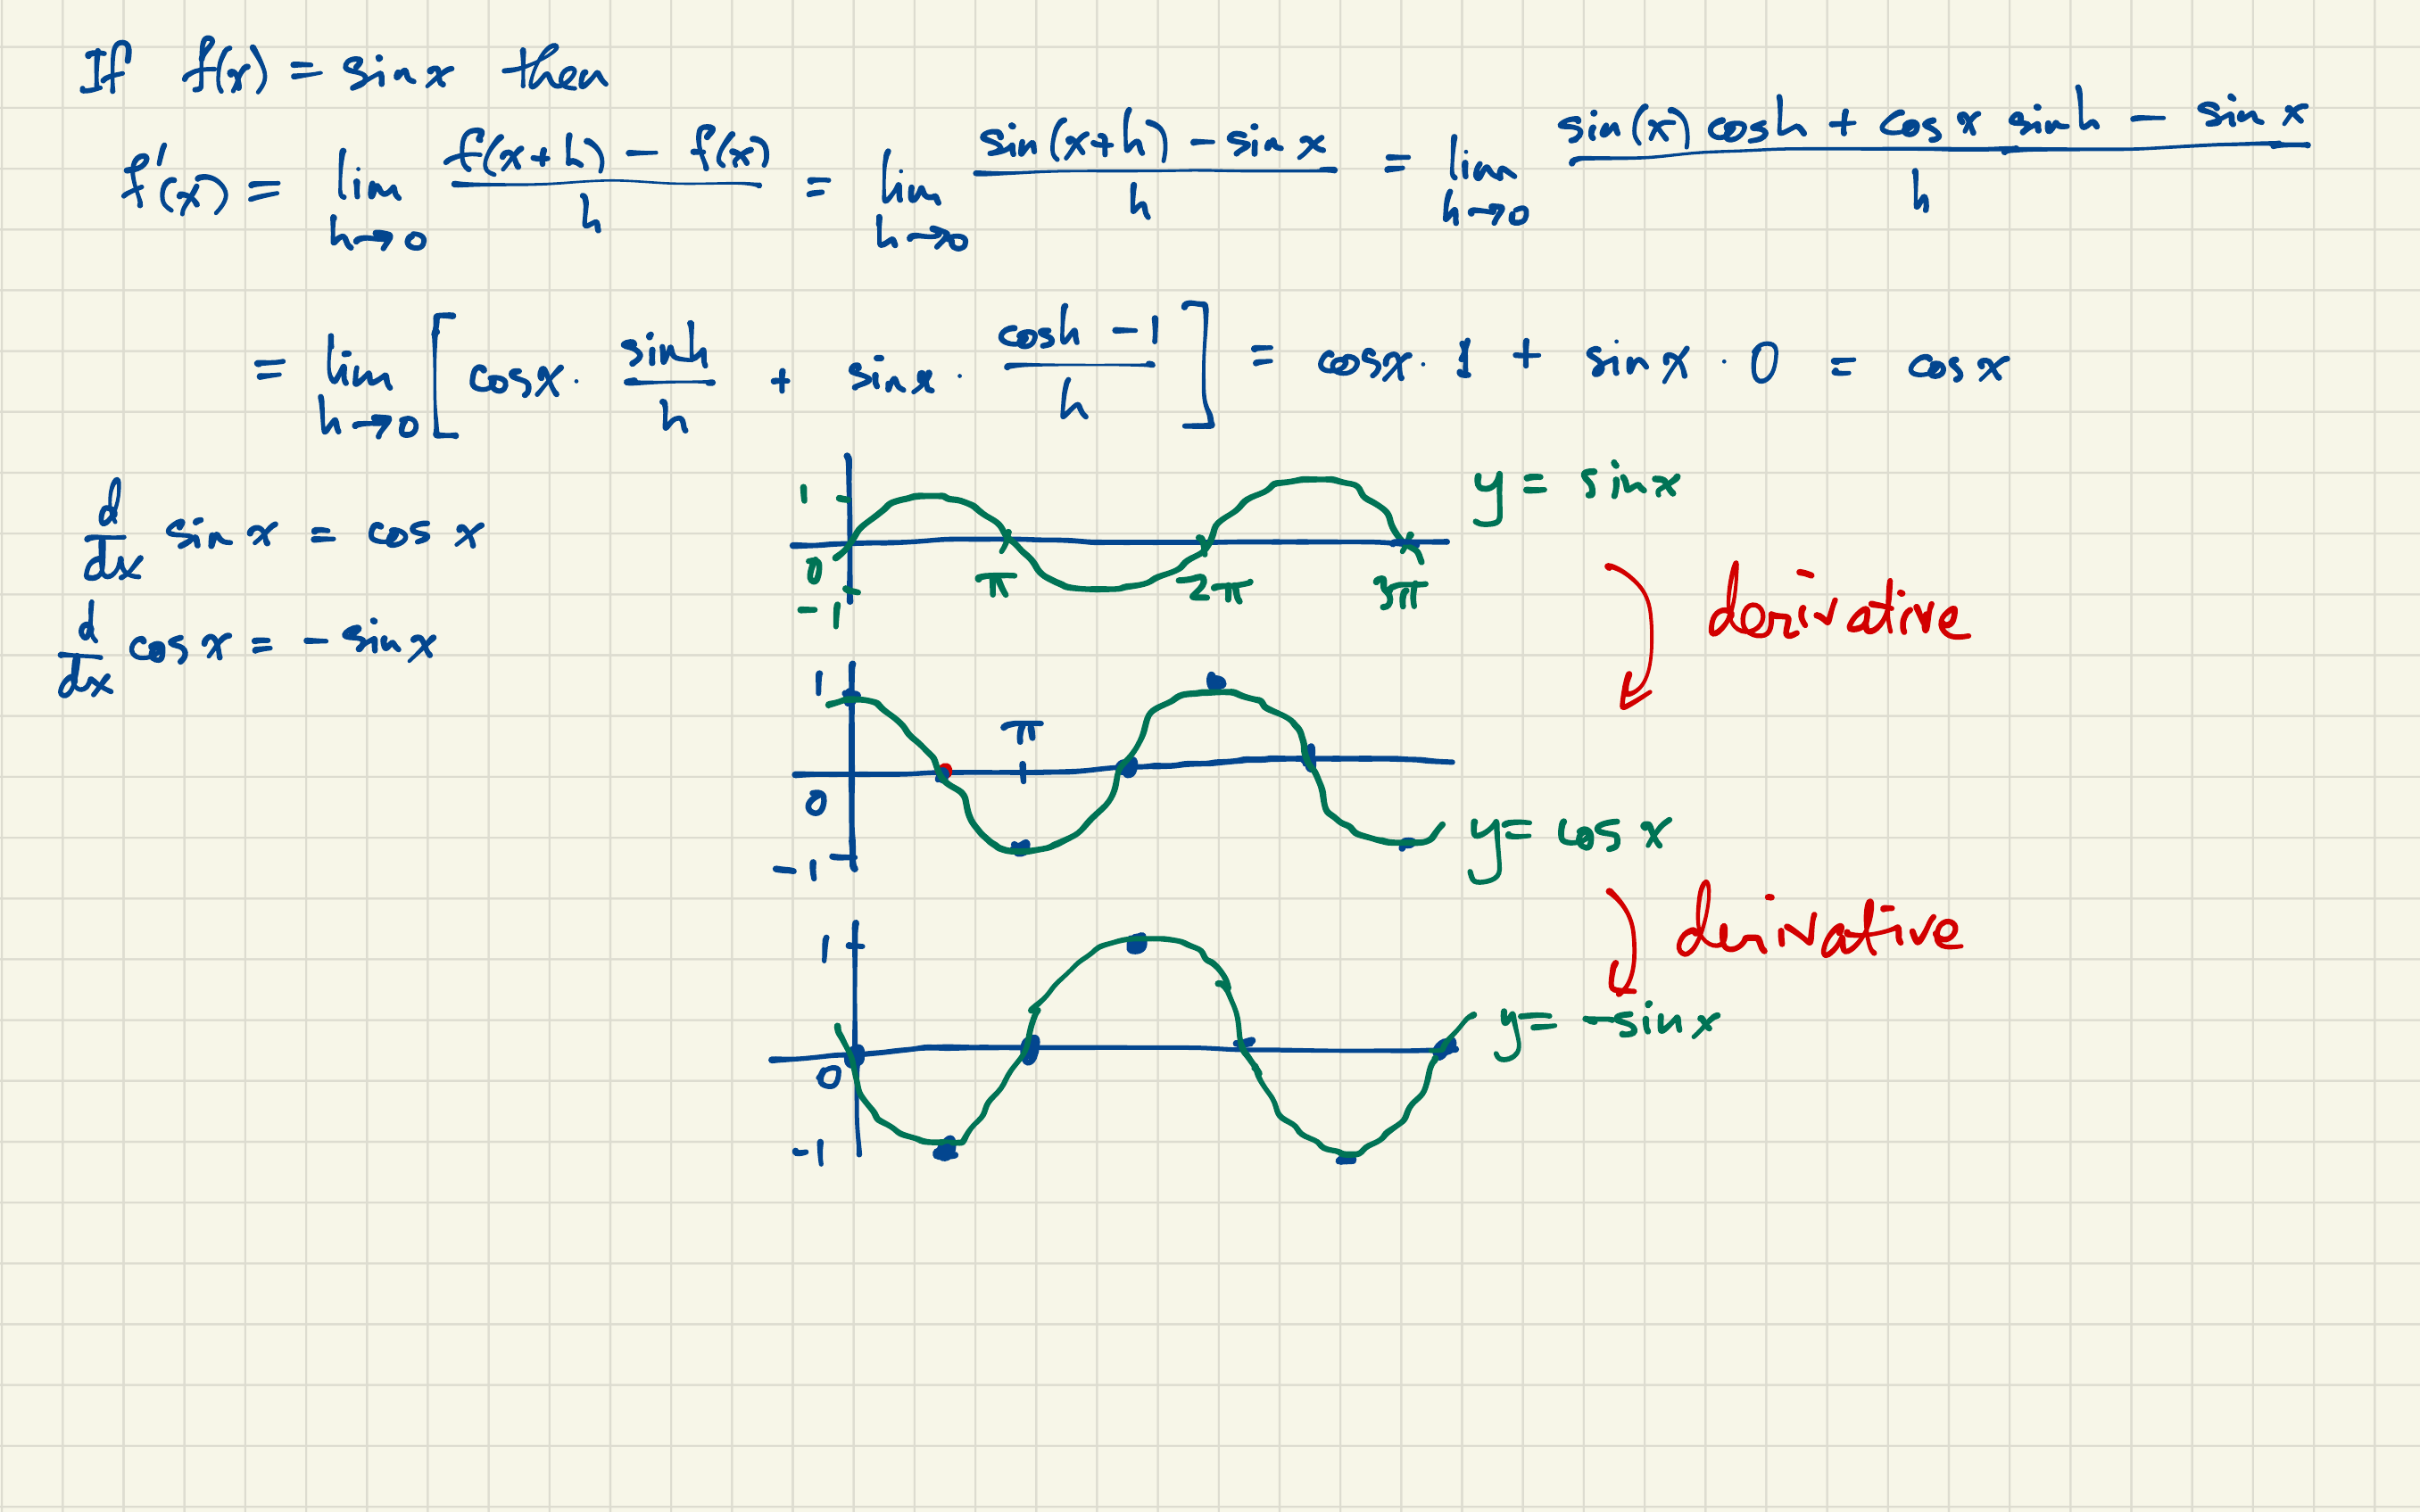 If f(x) = sin x then
f'(x) = lim h→0 (f(x+h) − f(x))/h = lim h→0 (sin(x+h) − sin x)/h = lim h→0 (sin(x) cosh + cos x sinh − sin x)/h
= lim h→0 [cosx · sinh/h + sinx · (cosh −1)/h] = cosx · 1 + sinx · 0 = cosx
d/dx sin x = cos x
d/dx cosx = − sinx
1
0
−1
π
2π
3π
y = sinx
derivative
1
π
0
−1
y = cosx
derivative
1
0
−1
y = −sinx